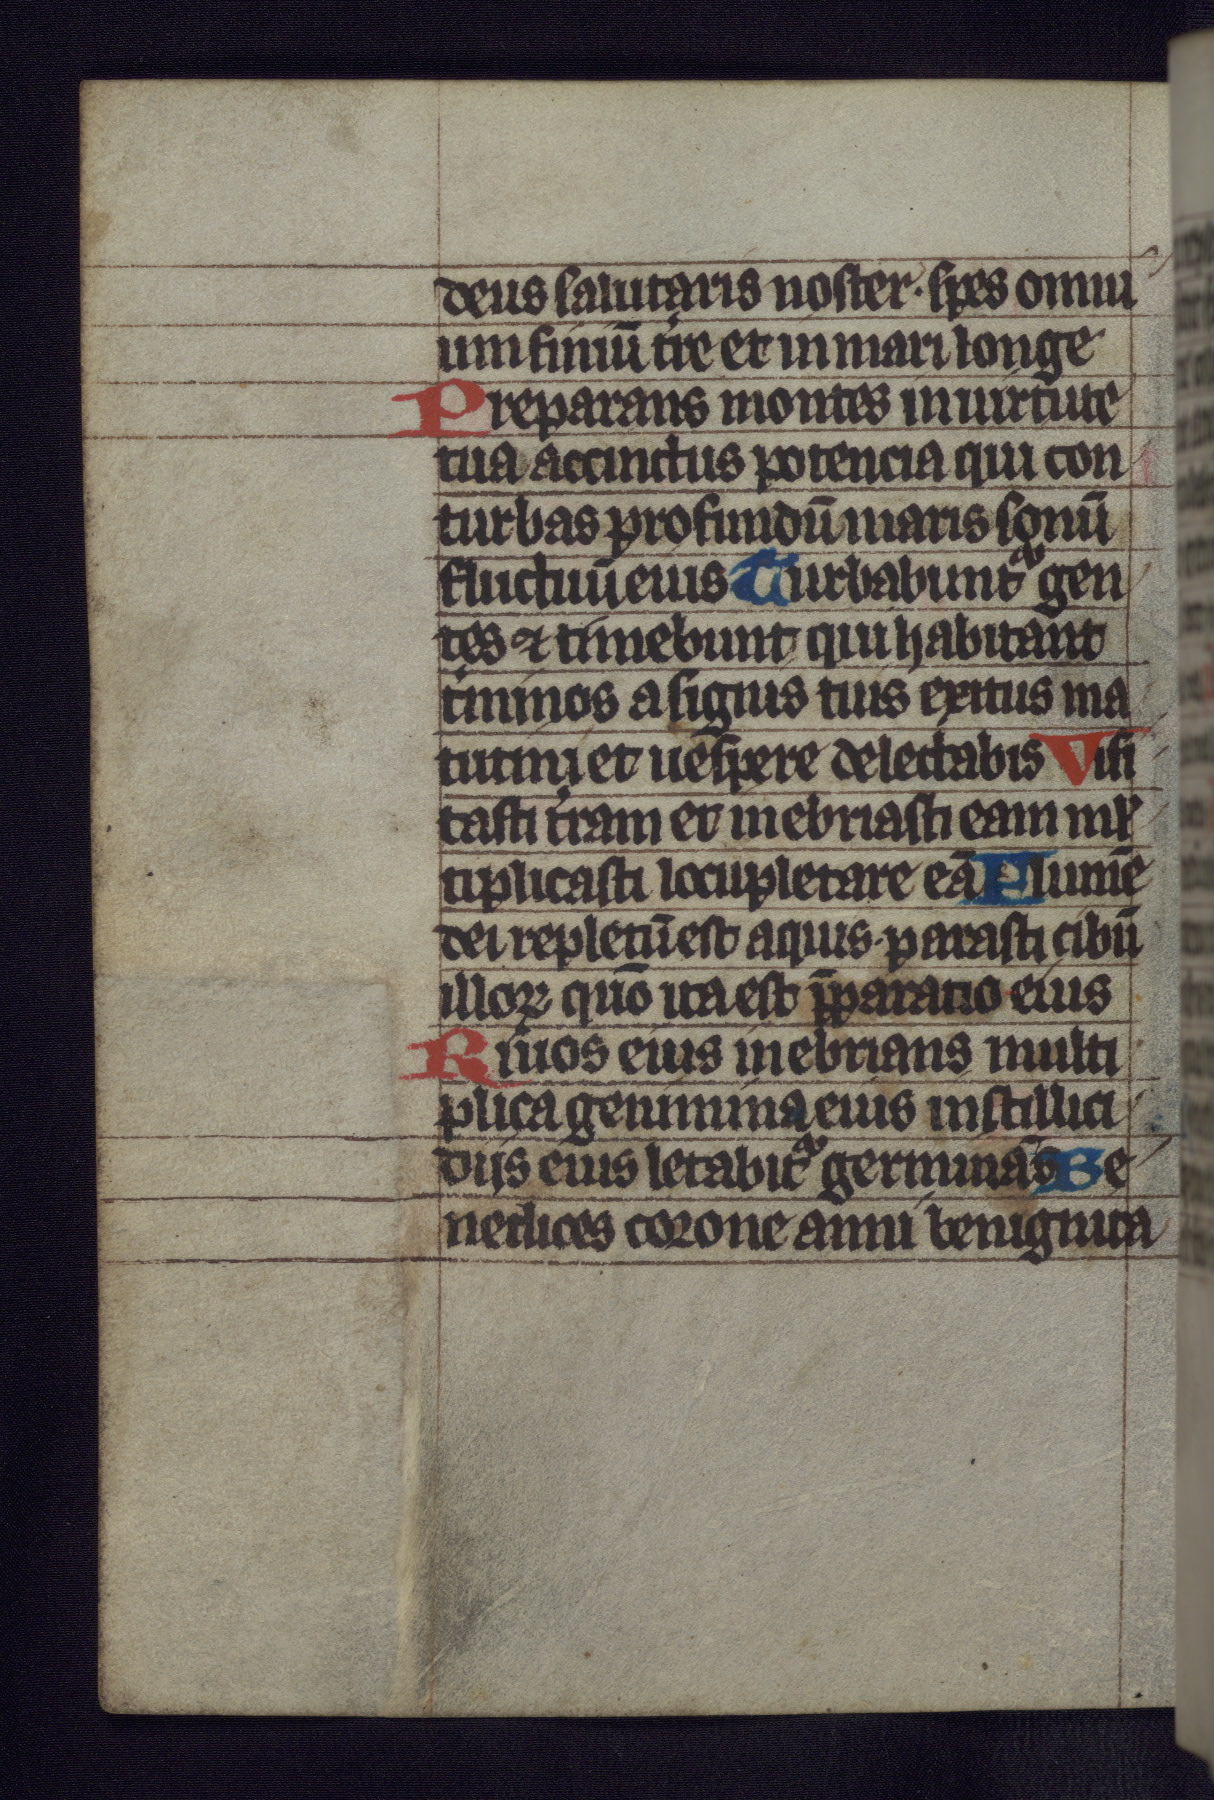 deus salutaris noster · spes omniu
um finiū tre et in mari longe
Preparans montes in uirtute
tua accinctus potencia qui con
turbas profundū maris sonū
fluctuū eius Turbabunt᷑ gen
tes ⁊ timebunt qui habitant
tminos a signis tuis exitus ma
tutini et uespere delectabis Visi
tasti tram et inebriasti eam ml᷑
tiplicasti locupletare eā Flumē
dei repletū est aquis · parasti cibū
illoꝝ quō ita est p̄paratio eius
Riuos eius inebrians multi
plica genimina eius in stillici
dijs eius letabit᷑ germinās Be
nedices corone anni benignita